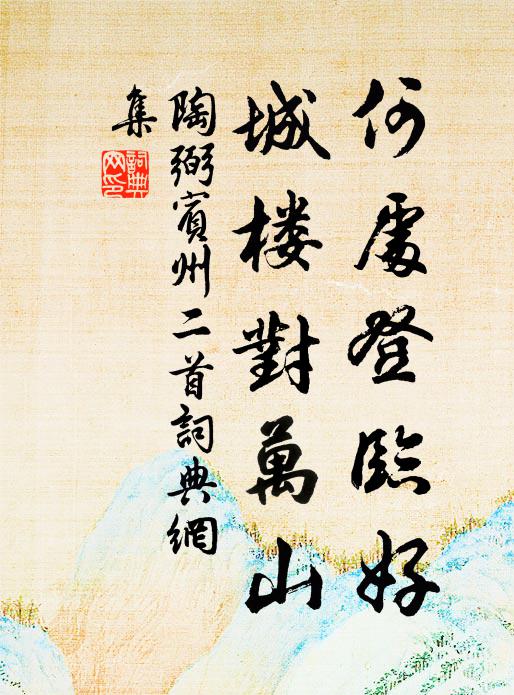 何處登臨好
城楼對萬山
陶弼賓州二首詞典網
集
詞典
网印